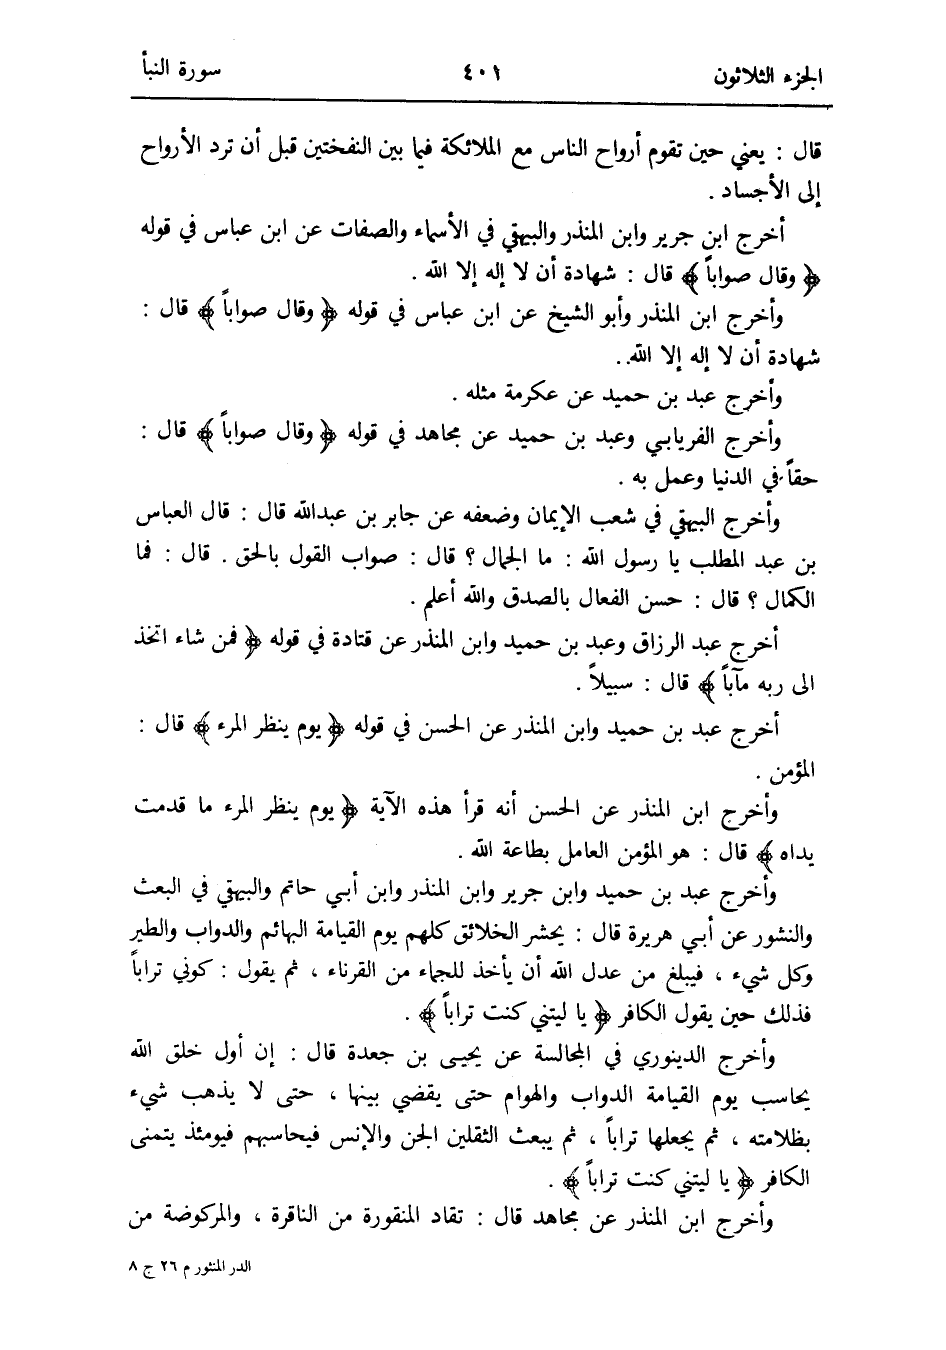 الجزء الثلاثون ٤٠١ سورة النبأ
قال : يعني حين تقوم أرواح الناس مع الملائكة فيما بين النفختين قبل أن ترد الأرواح
إلى الأجساد .
أخرج ابن جرير وابن المنذر والبيهقي في الأسماء والصفات عن ابن عباس في قوله
﴿ وقال صواباً ﴾ قال : شهادة أن لا إله إلا الله .
وأخرج ابن المنذر وأبو الشيخ عن ابن عباس في قوله ﴿ وقال صواباً ﴾ قال :
شهادة أن لا إله إلا الله. .
وأخرج عبد بن حميد عن عكرمة مثله .
وأخرج الفريابي وعبد بن حميد عن مجاهد في قوله ﴿ وقال صواباً ﴾ قال :
حقاً في الدنيا وعمل به .
وأخرج البيهقي في شعب الإيمان وضعفه عن جابر بن عبدالله قال : قال العباس
بن عبد المطلب يا رسول الله : ما الجمال ؟ قال : صواب القول بالحق . قال : فما
الكمال ؟ قال : حسن الفعال بالصدق والله أعلم .
أخرج عبد الرزاق وعبد بن حميد وابن المنذر عن قتادة في قوله ﴿ فمن شاء اتخذ
الى ربه مآباً ﴾ قال : سبيلاً .
أخرج عبد بن حميد وابن المنذر عن الحسن في قوله ﴿ يوم ينظر المرء ﴾ قال :
المؤمن .
وأخرج ابن المنذر عن الحسن أنه قرأ هذه الآية ﴿ يوم ينظر المرء ما قدمت
يداه ﴾ قال : هو المؤمن العامل بطاعة الله .
وأخرج عبد بن حميد وابن جرير وابن المنذر وابن أبي حاتم والبيهقي في البعث
والنشور عن أبي هريرة قال : يحشر الخلائق كلهم يوم القيامة البهائم والدواب والطير
وكل شيء ، فيبلغ من عدل الله أن يأخذ للجماء من القرناء ، ثم يقول : كوني تراباً
فذلك حين يقول الكافر ﴿ يا ليتني كنت تراباً ﴾ .
وأخرج الدينوري في المجالسة عن يحيى بن جعدة قال : إن أول خلق الله
يحاسب يوم القيامة الدواب والهوام حتى يقضي بينها ، حتى لا يذهب شيء
بظلامته ، ثم يجعلها تراباً ، ثم يبعث الثقلين الجن والإنس فيحاسبهم فيومئذ يتمنى
الكافر ﴿ يا ليتني كنت تراباً ﴾ .
وأخرج ابن المنذر عن مجاهد قال : تقاد المنقورة من الناقرة ، والمركوضة من
الدر المنثور م ٢٦ ج ٨